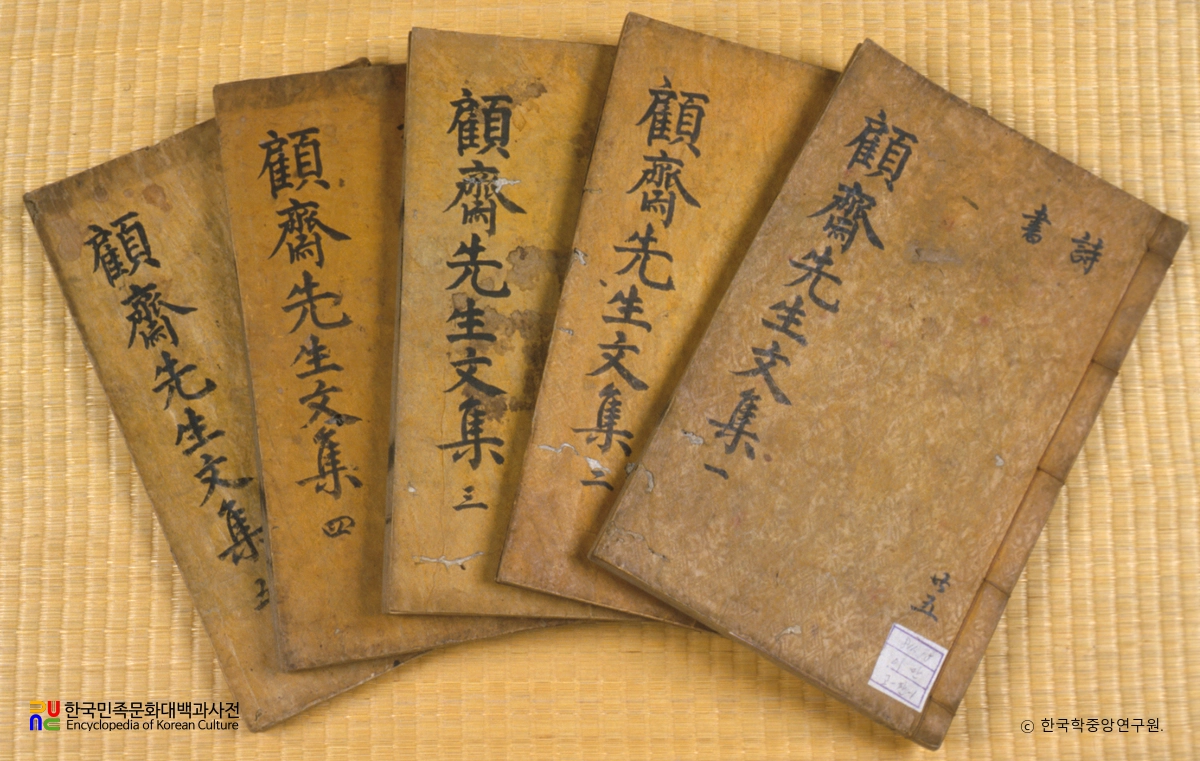 顧齋先生文集 一
詩
書
共五
顧齋先生文集 二
顧齋先生文集 三
顧齋先生文集 四
顧齋先生文集 五
한국민족문화대백과사전
Encyclopedia of Korean Culture
ⓒ 한국학중앙연구원.